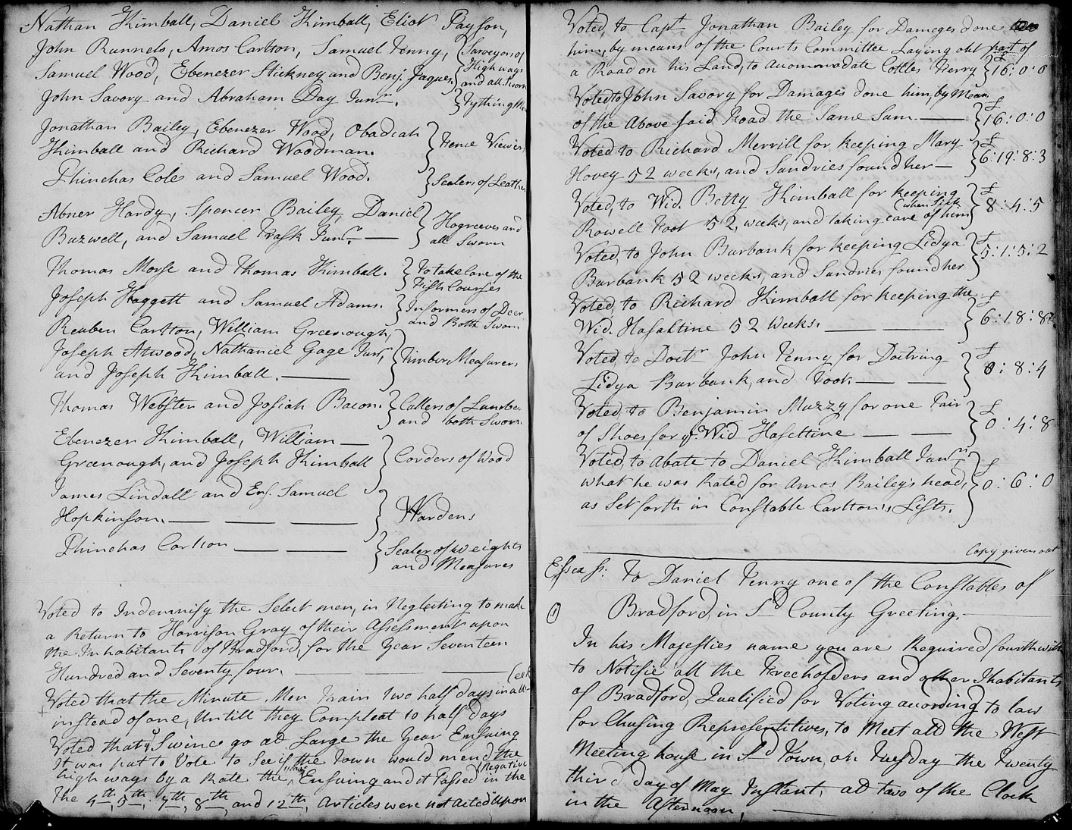 Nathan Kimball, Daniel Kimball, Eliot Payson,
John Runnels, Amos Carlton, Samuel Tenny,
Samuel Wood, Ebenezer Stickney and Benj. Jaques
Surveyors of
Highways
and all Sworn
John Savory and Abraham Day Junr.
Tythingmen
Jonathan Bailey, Ebenezer Wood, Obadiah
Kimball and Richard Woodman.
Fence Viewers
Phinehas Coles and Samuel Wood.
Sealers of Leather
Abner Hardy, Spencer Bailey, Daniel
Buzwell, and Samuel Trask Junr.
Hogreeves and
all Sworn
Thomas Morse and Thomas Kimball.
To take Care of the
Fish Courses
Joseph Haggett and Samuel Adams.
Informers of Deer
and Both Sworn
Reuben Carlton, William Greenough,
Joseph Atwood, Nathaniel Gage Junr,
and Joseph Kimball.
Timber Measurers
Thomas Webster and Josiah Bacon.
Cullers of Lumber
and both Sworn
Ebenezer Kimball, William
Greenough, and Joseph Kimball
Corders of Wood
James Lindall and Ens. Samuel
Hopkinson.
Wardens
Phinehas Carlton
Sealer of weights
and Measures
Voted to Indemnify the Select men, in Neglecting to make
a Return to Harrison Gray of their Assessment upon
the Inhabitants of Bradford, for the Year Seventeen
Hundred and Seventy four.
Voted that the Minute Men train two half days in a
instead of one, Untill they Compleat 10 half days
Voted that ye Swine go at Large the Year Ensuing
It was put to Vote to See if the Town would mend the
high ways by a Rate the Year Ensuing and it Passed in the Negative
The 4th, 5th, 7th, 8th, and 12th, Articles were not acted upon
Voted, to Capt. Jonathan Bailey for Damages done
him, by means of the Courts Committee Laying out part of
a Road on his Land, to Accommodate Colles Ferry
£ 16:0:0
Voted to John Savory for Damages done him, by Mean
of the Above said Road the Same Sum
£ 16:0:0
Voted to Richard Merrill for keeping Mary
Hovey 52 weeks, and Sundries found her
£ 6:19:8:3
Voted, to Wid. Betty Kimball for keeping
Rowell Foot 52 weeks, and taking care of him when Sick
£ 8:4:5
Voted to John Burbank for keeping Lidya
Burbank 52 weeks, and Sundries found her
£ 5:1:5:2
Voted to Richard Kimball for keeping the
Wid. Hasaltine 52 Weeks.
£ 6:18:8
Voted to Doctr John Tenny for Doctring
Lidya Burbank, and Foot.
£ 0:8:4
Voted, to Benjamin Muzzy for one Pair
of Shoes for ye Wid Haseltine
£ 0:4:8
Voted, to Abate to Daniel Kimball Junr.
what he was Rated for Amos Bailey's head,
as Set forth in Constable Carlton's, Lists.
£ 0:6:0
Copy given out
Essex ss. To Daniel Tenny one of the Constables of
Bradford, in Sd County Greeting.
In his Majesties name you are Required fourthwith
to Notifie all the Freeholders and other Inhabitants
of Bradford, Qualified for Voting according to law
for Chusing Representitives, to Meet att the West
Meeting house in Sd Town, on Tuesday the Twenty
third day of May Instant, at two of the Clock
in the Afternoon,